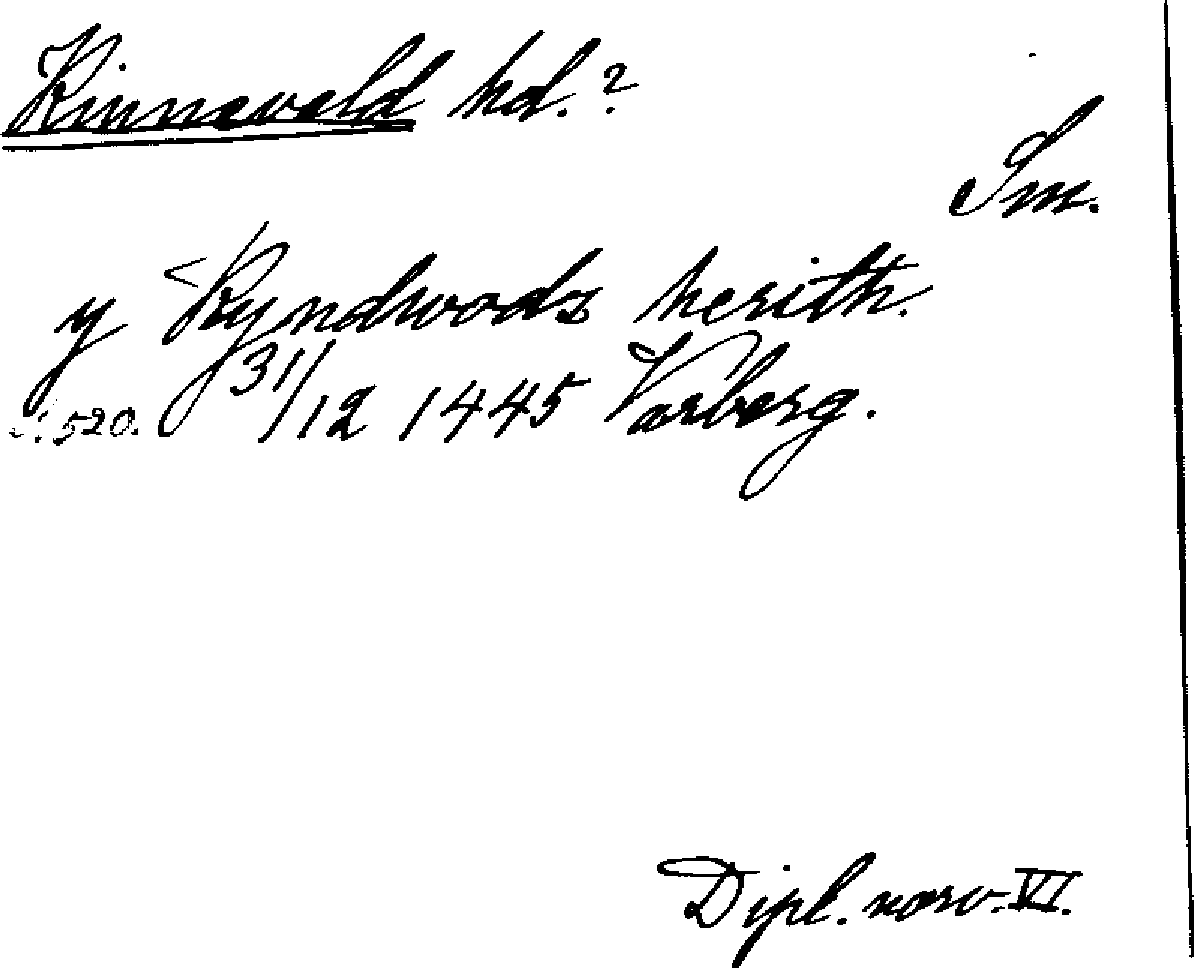 Kinnevald hd.?
Sm.
y Kyndwodz herith.
s. 520. 31/12 1445 Varberg.
Dipl. norv. VI.